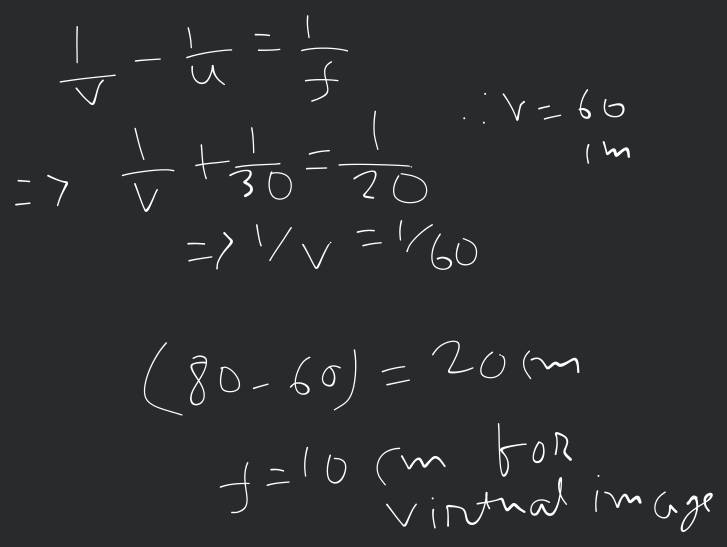 1/v - 1/u = 1/f
=> 1/v + 1/30 = 1/20
∴ v = 60 cm
=> 1/v = 1/60
(80-60) = 20 cm
f = 10 cm for
virtual image